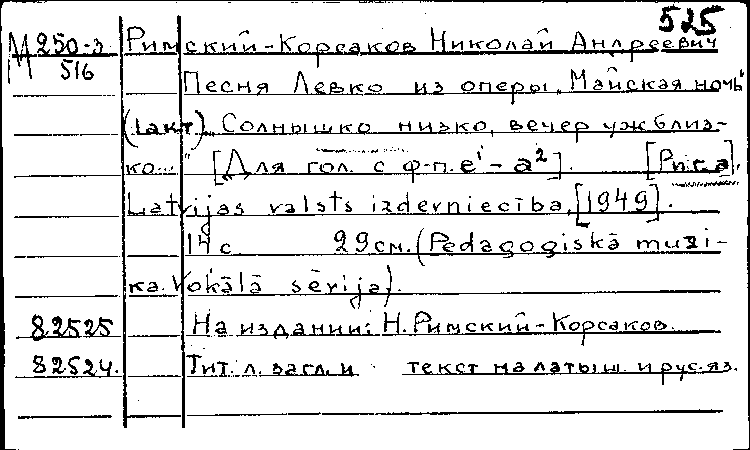 525
М 250-3 Римский-Корсаков Николай Андреевич
516
Песня Левко из оперы „Майская ночь"
(1 акт). „Солнышко низко, вечер уж близ-
ко..." [Для гол. с ф-п. e¹ - a²]. [Рига],
Latvijas valsts izdevniecība, [1949].
14 с 29 см. (Pedagogiskā muzi-
ka. Vokālā sērija).
82525 На издании: Н. Римский-Корсаков.
82524. Тит. л. загл. и текст на латыш. и рус. яз.